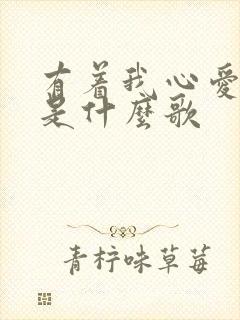 有着我心愛
是什麼歌
青柠味草莓